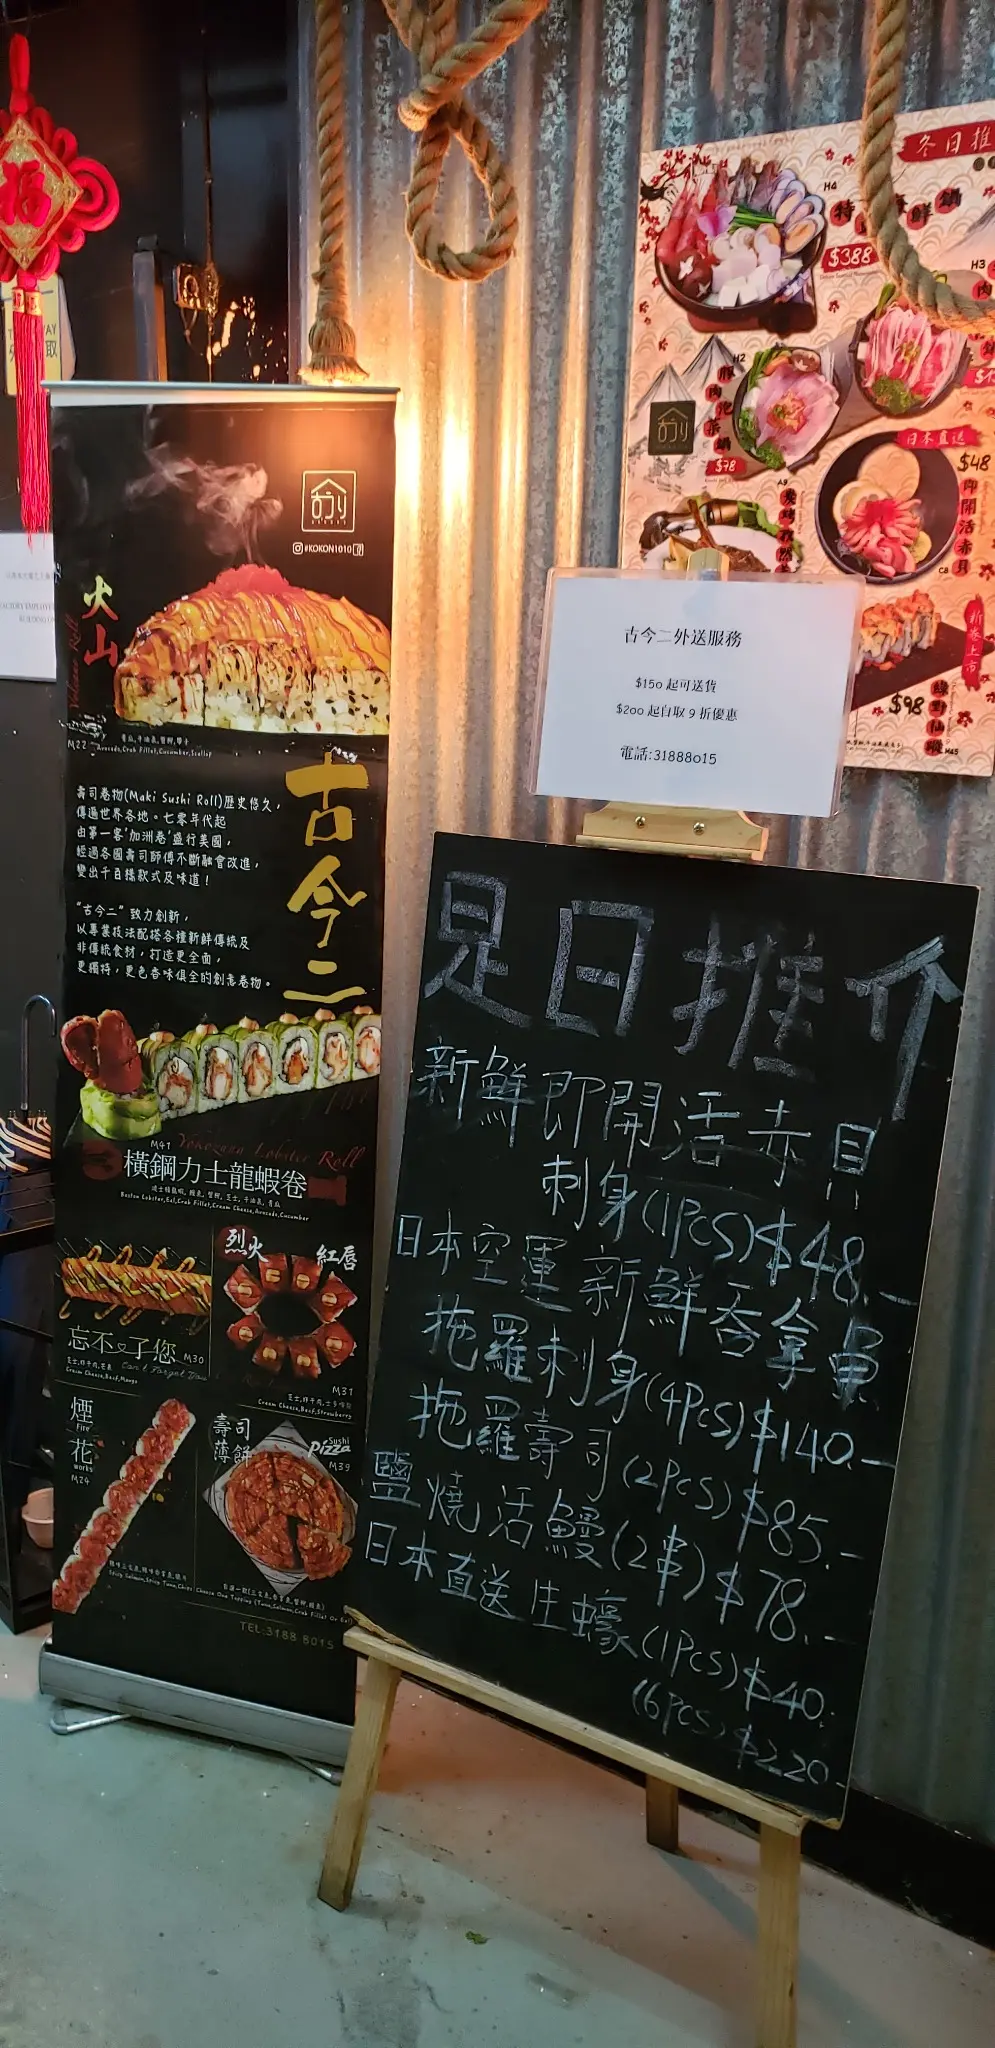 福
#KOKON1010
火山
Volcano Roll
M22
青瓜,牛油果,蟹柳,帶子
Avocado,Crab Fillet,Cucumber,Scallop
古今二
壽司卷物(Maki Sushi Roll)歷史悠久,
傳遍世界各地。七零年代起
由第一客'加洲卷'盛行美國,
經過各國壽司師傅不斷融會改進,
變出千百種款式及味道!
"古今二" 致力創新,
以專業技法配搭各種新鮮傳統及
非傳統食材,打造更全面,
更獨特,更色香味俱全的創意卷物。
M41
Yokozuna Lobster Roll
橫鋼力士龍蝦卷
Boston Lobster,Eel,Crab Fillet,Cream Cheese,Avocado,Cucumber
忘不了您 M30
Can't Forget You
Cream Cheese,Beef,Mango
烈火
紅唇
M31
Cream Cheese,Beef,Strawberry
煙花
Fire
works
M24
Spicy Salmon,Spicy Tuna,Chips
壽司
薄餅
Sushi
Pizza
M39
Choose One Topping (Tuna,Salmon,Crab Fillet Or Eel)
TEL:3188 8015
冬日推
H4
鮮鍋
$388
H3
H2
$78
日本直送
$48
即開活赤貝
C8
A9
新卷上市
$98
M45
古今二外送服務
$150 起可送貨
$200 起自取 9 折優惠
電話:31888015
是日推介
新鮮即開活赤貝
刺身(1PCS)$48.-
日本空運新鮮吞拿魚
拖羅刺身(4PCS)$140.-
拖羅壽司(2PCS)$85.-
鹽燒活鰻(2串)$78.-
日本直送生蠔(1PCS)$40.
(6PCS)$220.-